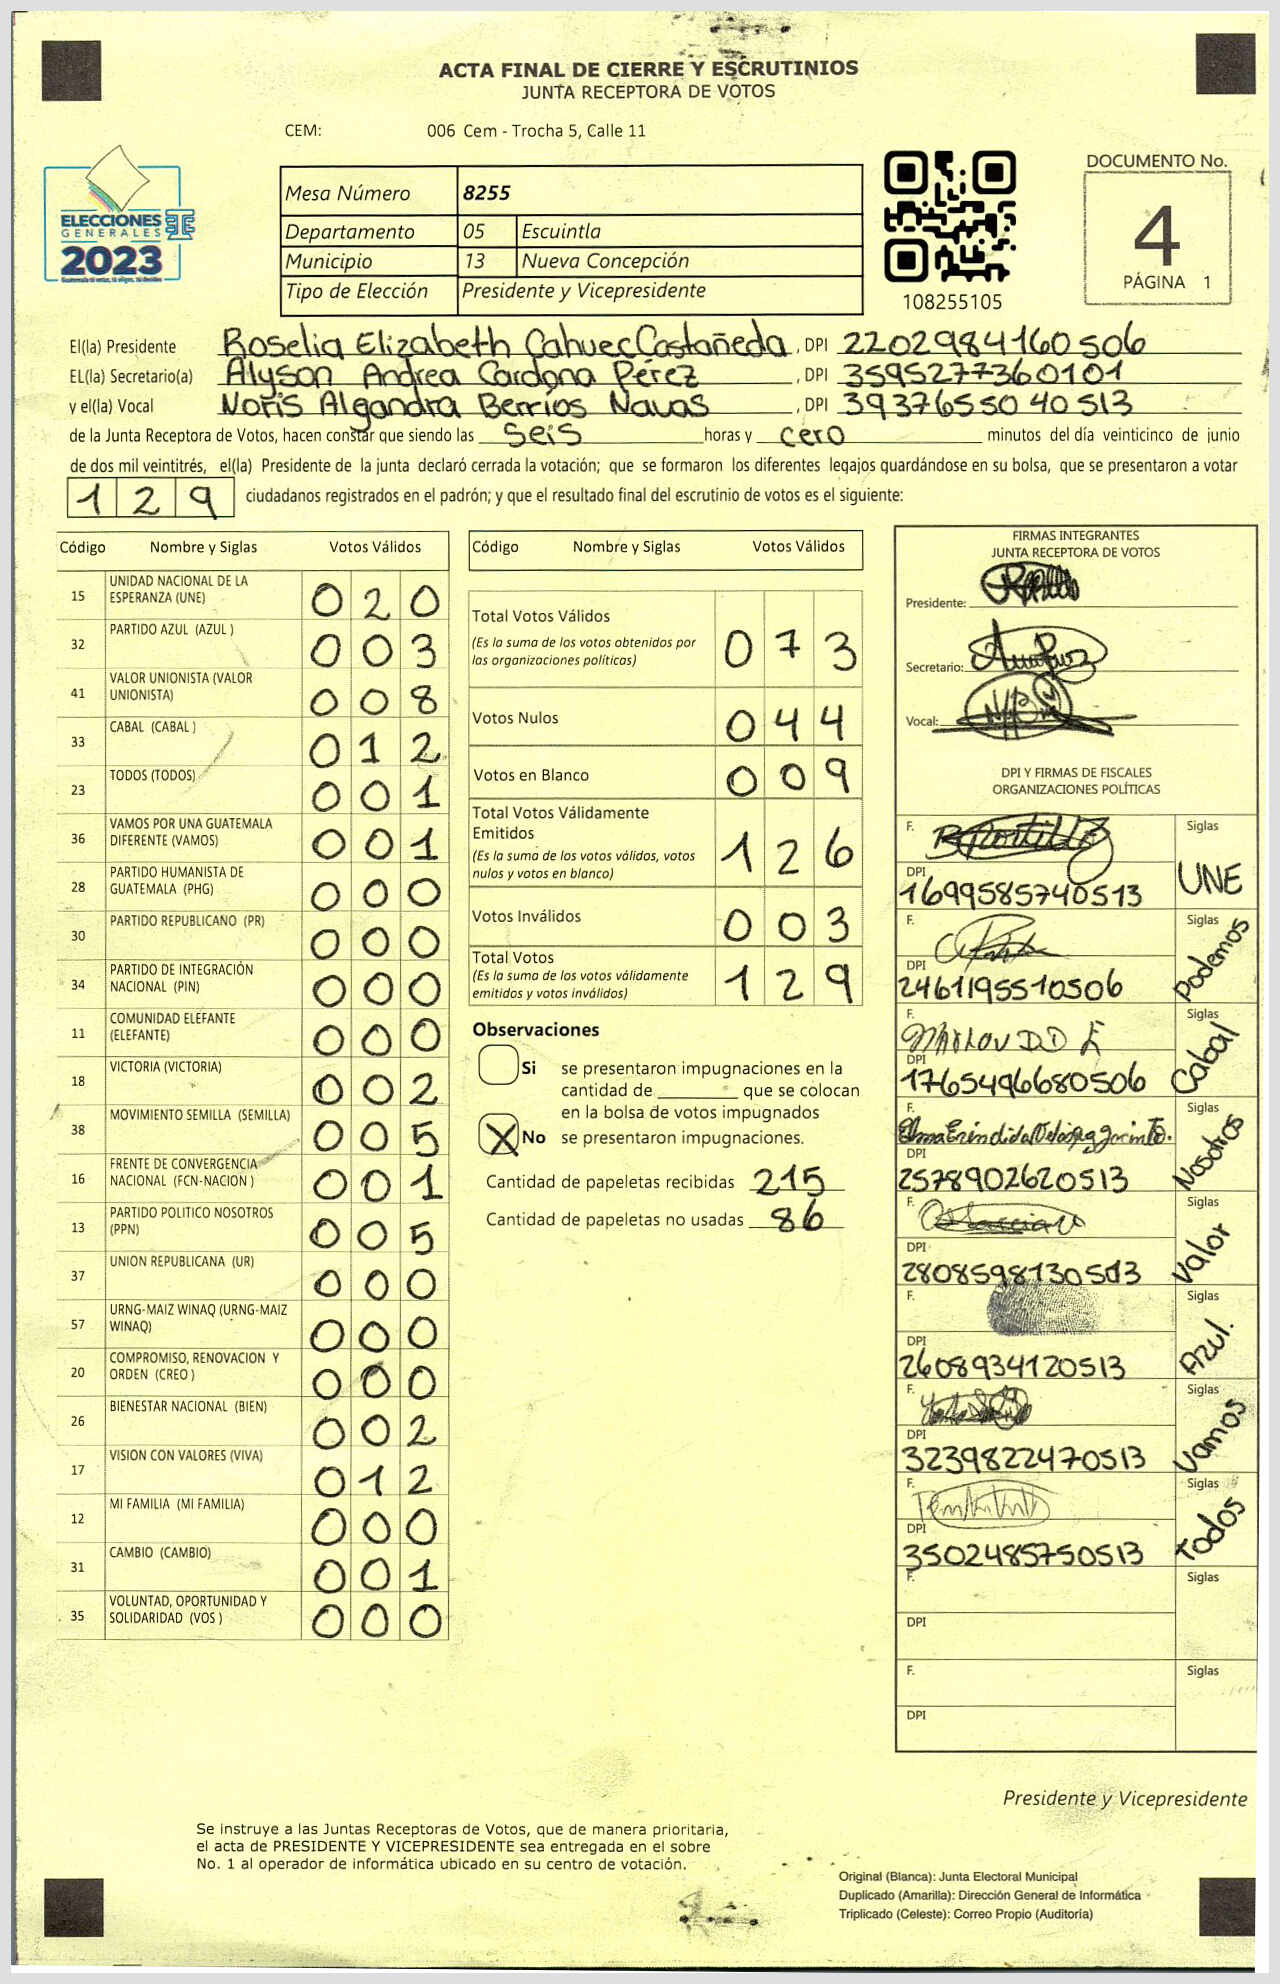 ACTA FINAL DE CIERRE Y ESCRUTINIOS
JUNTA RECEPTORA DE VOTOS
CEM: 006 Cem - Trocha 5, Calle 11
ELECCIONES
GENERALES
2023
Mesa Número 8255
Departamento 05 Escuintla
Municipio 13 Nueva Concepción
Tipo de Elección Presidente y Vicepresidente
108255105
DOCUMENTO No.
4
PÁGINA 1
El(la) Presidente Roselia Elizabeth Cahuec Castañeda, DPI 2202984160506
EL(la) Secretario(a) Alyson Andrea Cardona Pérez, DPI 3595277360101
y el(la) Vocal Noris Algandra Berríos Navas, DPI 3937655040513
de la Junta Receptora de Votos, hacen constar que siendo las seis horas y cero minutos del día veinticinco de junio
de dos mil veintitrés, el(la) Presidente de la junta declaró cerrada la votación; que se formaron los diferentes legajos guardándose en su bolsa, que se presentaron a votar
129 ciudadanos registrados en el padrón; y que el resultado final del escrutinio de votos es el siguiente:
Código Nombre y Siglas Votos Válidos
15 UNIDAD NACIONAL DE LA ESPERANZA (UNE) 020
32 PARTIDO AZUL (AZUL ) 003
41 VALOR UNIONISTA (VALOR UNIONISTA) 008
33 CABAL (CABAL ) 012
23 TODOS (TODOS) 001
36 VAMOS POR UNA GUATEMALA DIFERENTE (VAMOS) 001
28 PARTIDO HUMANISTA DE GUATEMALA (PHG) 000
30 PARTIDO REPUBLICANO (PR) 000
34 PARTIDO DE INTEGRACIÓN NACIONAL (PIN) 000
11 COMUNIDAD ELEFANTE (ELEFANTE) 000
18 VICTORIA (VICTORIA) 002
38 MOVIMIENTO SEMILLA (SEMILLA) 005
16 FRENTE DE CONVERGENCIA NACIONAL (FCN-NACION ) 001
13 PARTIDO POLITICO NOSOTROS (PPN) 005
37 UNION REPUBLICANA (UR) 000
57 URNG-MAIZ WINAQ (URNG-MAIZ WINAQ) 000
20 COMPROMISO, RENOVACION Y ORDEN (CREO ) 000
26 BIENESTAR NACIONAL (BIEN) 002
17 VISION CON VALORES (VIVA) 012
12 MI FAMILIA (MI FAMILIA) 000
31 CAMBIO (CAMBIO) 001
35 VOLUNTAD, OPORTUNIDAD Y SOLIDARIDAD (VOS ) 000
Código Nombre y Siglas Votos Válidos
Total Votos Válidos 073
(Es la suma de los votos obtenidos por
las organizaciones políticas)
Votos Nulos 044
Votos en Blanco 009
Total Votos Válidamente
Emitidos 126
(Es la suma de los votos válidos, votos
nulos y votos en blanco)
Votos Inválidos 003
Total Votos 129
(Es la suma de los votos válidamente
emitidos y votos inválidos)
Observaciones
Si se presentaron impugnaciones en la
cantidad de ________ que se colocan
en la bolsa de votos impugnados
X No se presentaron impugnaciones.
Cantidad de papeletas recibidas 215
Cantidad de papeletas no usadas 86
FIRMAS INTEGRANTES
JUNTA RECEPTORA DE VOTOS
Presidente:
Secretario:
Vocal:
DPI Y FIRMAS DE FISCALES
ORGANIZACIONES POLÍTICAS
F. Siglas
DPI 1699585740513 UNE
F. Siglas
DPI 2461195510506 Podemos
F. Siglas
DPI 1765496680506 Cabal
F. Siglas
DPI 2578902620513 Nosotros
F. Siglas
DPI 2808598130513 Valor
F. Siglas
DPI 2608934120513 Azul.
F. Siglas
DPI 3239822470513 Vamos
F. Siglas
DPI 3502485750513 Todos
F. Siglas
DPI
F. Siglas
DPI
Presidente y Vicepresidente
Se instruye a las Juntas Receptoras de Votos, que de manera prioritaria,
el acta de PRESIDENTE Y VICEPRESIDENTE sea entregada en el sobre
No. 1 al operador de informática ubicado en su centro de votación.
Original (Blanca): Junta Electoral Municipal
Duplicado (Amarilla): Dirección General de Informática
Triplicado (Celeste): Correo Propio (Auditoría)